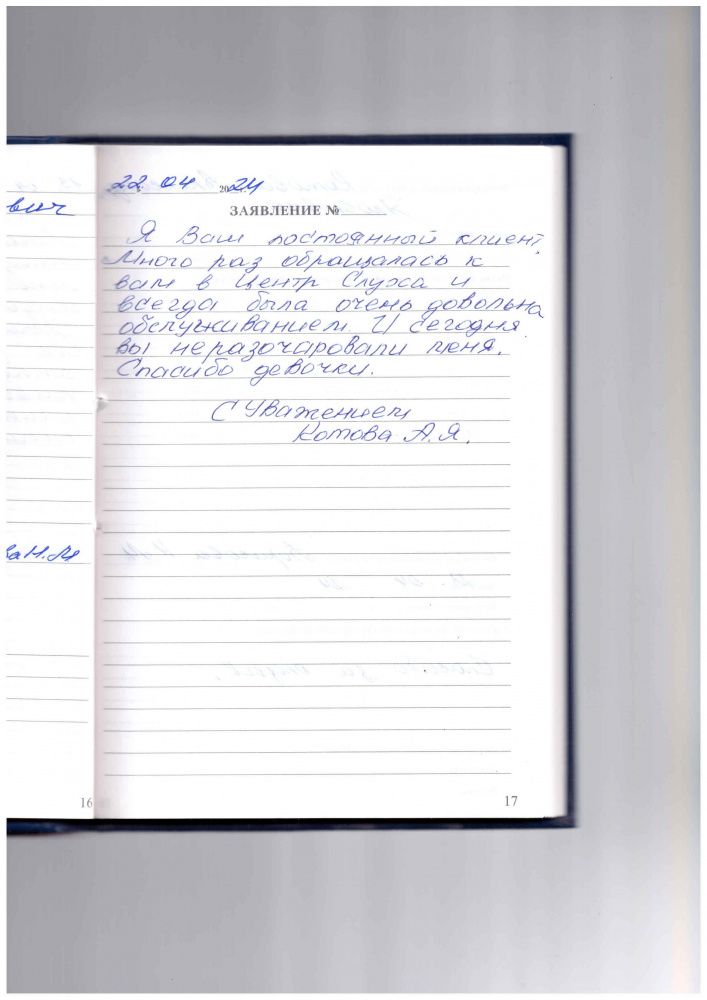 вич
22 04 2024
ЗАЯВЛЕНИЕ №
Я Ваш постоянный клиент.
Много раз обращалась к
вам в Центр Слуха и
всегда была очень довольна
обслуживанием. И сегодня
вы не разочаровали меня.
Спасибо девочки.
С Уважением
Котова А.Я.
ва Н.М
16
17